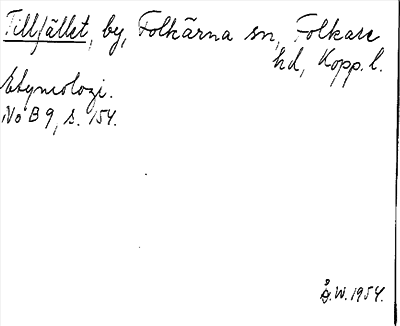 Tillfället, by, Folkärna sn, Folkare
hd, Kopp. l.
Etymologi.
No B 9, s. 154.
Å.W. 1954.